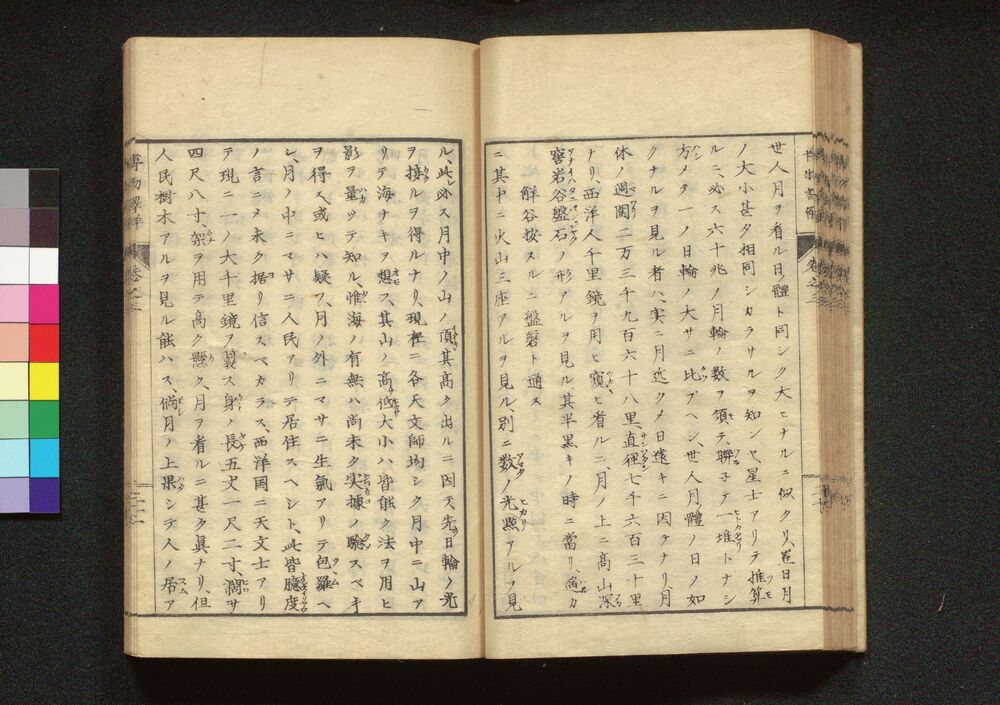 世人月ヲ看ル日ノ體ト同シク大ヒナルニ似タリ、豈日月
ノ大小甚タ相同シカラサルヲ知ンヤ、星士アリテ推算
ルニ、必ス六十兆ノ月輪ノ数ヲ須テ、聯子テ一堆トナシ
方メテ一ノ日輪ノ大サニ比ブヘシ、世人月體ノ日ノ如
クナルヲ見ル者ハ、実ニ月近クメ日遠キニ因テナリ、月
体ノ週圍二万三千九百六十八里、直徑七千六百三十里
ナリ、西洋人千里鏡ヲ用ヒ窺ヒ看ルニ、月ノ上ニ高山深
窖岩谷盤石ノ形アルヲ見ル、其半黒キノ時ニ當リ、遙カ
觧谷按スルニ盤磐ト通ス
ニ其中ニ火山三座アルヲ見ル、別ニ数ノ光點アルヲ見
ル、此必ス月中ノ山ノ頂其高ク出ルニ因テ、先日輪ノ光
ヲ接ルヲ得ルナリ、現在ニ各天文師均シク月中ニ山ア
リテ海ナキヲ想フ、其山ノ高低大小ハ皆能ク法ヲ用ヒ
影ヲ量ツテ知ル、惟海ノ有無ハ尚未タ実據ノ騐スベキ
ヲ得ス、或ヒハ疑フ、月ノ外ニマサニ生氣アリテ包羅ヘ
シ、月ノ中ニマサニ人民アリテ居住スヘシト、此皆臆度
ノ言ニメ未タ据リ信スベカラス、西洋国ニ天文士アリ
テ現ニ一ノ大千里鏡ヲ製ス、身ノ長五丈一尺二寸、濶サ
四尺八寸、架ヲ用テ高ク懸ク、月ヲ看ルニ甚タ眞ナリ、但
人民樹木アルヲ見ル能ハス、倘月ノ上果シテ人ノ居ア